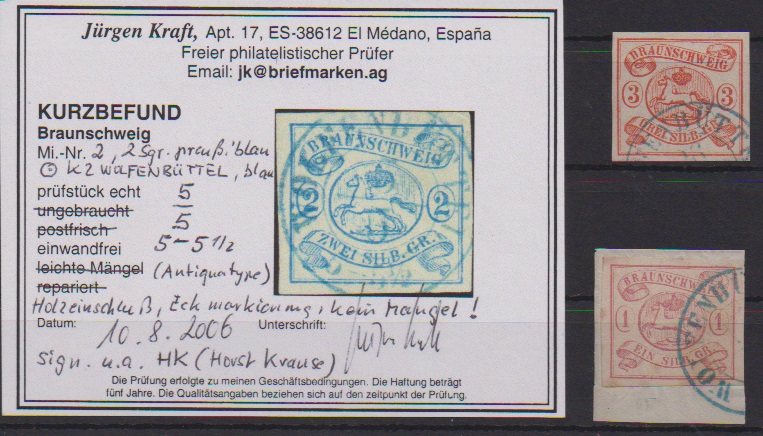 Jürgen Kraft, Apt. 17, ES-38612 El Médano, España
Freier philatelistischer Prüfer
Email: jk@briefmarken.ag
KURZBEFUND
Braunschweig
Mi.-Nr. 2, 2 Sgr. preuß.'blau
⊙ K2 WOLFENBÜTTEL, blau
prüfstück echt 5
ungebraucht
postfrisch 5
einwandfrei 5-5 1/2
leichte Mängel (Antiquatype)
repariert
Holzeinschluß, Eckmarkierung, kein Mangel!
Datum: 10.8.2006 Unterschrift:
Sign. u.a. HK (Horst Krause)
Die Prüfung erfolgte zu meinen Geschäftsbedingungen. Die Haftung beträgt
fünf Jahre. Die Qualitätsangaben beziehen sich auf den zeitpunkt der Prüfung.
BRAUNSCHWEIG
2 2
ZWEI SILB. GR.
BRAUNSCHWEIG
3 3
DREI SILB. GR.
BRAUNSCHWEIG
1 1
EIN SILB. GR.